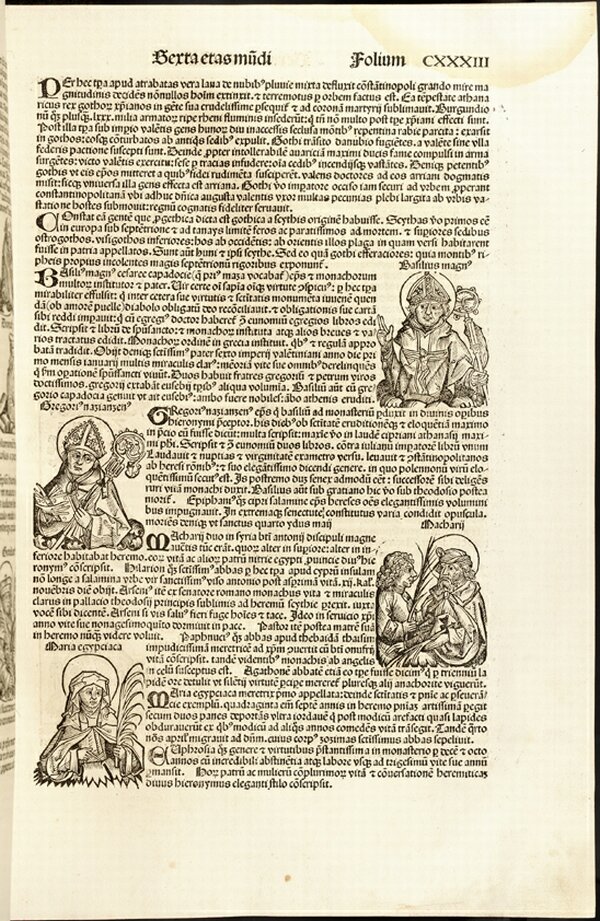 Sexta etas mũdi
Folium CXXXIII
PEr hec tp̃a apud atrabatas vera lana de nubib⁹ pluuie mixta defluxit cõstãtinopoli grando mire ma
gnitudinis decidẽs nõnullos hoĩm extinxit. ⁊ terremotus ꝑ orbem factus est. Ea tẽpestate athana
ricus rex gothoꝝ xp̃ianos in gẽte sua crudelissime ꝑsequit̃ ⁊ ad coronã martyrij sublimauit. Burgundio
nũ q̃ꝫ plusq̃ꝫ. lxxx. milia armatoꝝ ripe rheni fluminis insederũt: q̃ tñ nõ multo post tp̃e xp̃iani effecti sunt.
Post illa tp̃a sub impio valẽtis gens hunoꝝ diu inaccessis seclusa mõtib⁹ repentina rabie percita: exarsit
in gothos: eosq̃ꝫ cõturbatos ab antiq̃s sedib⁹ expulit. Gothi trãsito danubio fugiẽtes. a valẽte sine vlla
federis pactione suscepti sunt. Deinde ꝓpter intollerabilẽ auariciã maximi ducis fame compulsi in arma
surgẽtes: victo valẽtis exercitu: sese ꝑ tracias infudere: oĩa cedib⁹ incendijsq̃ꝫ vastãtes. Deniq̃ꝫ petentib⁹
gothis vt eis ep̃os mitteret a quib⁹ fidei rudimẽta susciperẽt. valens doctores ad eos arriani dogmatis
misit: sicq̃ꝫ vniuersa illa gens effecta est arriana. Gothi ṽo impatore occiso iam securi ad vrbem ꝓperant
constantinopolitanã vbi adhuc dñica augusta valentis vxor multas pecunias plebi largita ab vrbis va-
statione hostes submouit: regnũ cognatis fideliter seruauit.
COnstat eã gentẽ que ꝑgethica dicta est gothica a scythis originẽ habuisse. Scythas ṽo primos eẽ
in europa sub septẽtrione ⁊ ad tanays limitẽ feros ac paratissimos ad mortem. ⁊ supiores sedibus
ostrogothos. visigothos inferiores: hos ab occidẽtis: ab orientis illos plaga in quam versi habitarent
fuisse in patria appellatos. Sunt aũt huni ⁊ ip̃i scythe. Sed eo quã gothi efferaciores: quia montib⁹ ri-
pheis propius incolentes magis septẽtrionũ rigoribus exponunt̃.
Basilius magn⁹
BAsili⁹ magn⁹ cesaree capadocie (q̃ pri⁹ maza vocabat̃) ep̃s ⁊ monachorum
multoꝝ institutor ⁊ pater. Uir certe oĩ sapĩa oĩq̃ꝫ virtute ꝯspicu⁹: ꝑ hec tp̃a
mirabiliter effulsit: q̃ inter cetera sue virtutis ⁊ sctĩtatis monumẽta iuuenẽ quen
dã (ob amorẽ puelle) diabolo obligatũ deo recõciliauit. ⁊ obligationis sue cartã
sibi reddi impauit: q̃ cũ egregi⁹ doctor haberet̃ ꝯ̃ eunomiũ egregios libros edi
dit. Scripsit ⁊ librũ de sp̃usancto: ⁊ monachoꝝ instituta atq̃ꝫ alios breues ⁊ va-
rios tractatus edidit. Monachoꝝ ordinẽ in grecia instituit. q̃b⁹ ⁊ regulã appro
batã tradidit. Obijt deniq̃ꝫ sctissim⁹ pater sexto imperij valẽtiniani anno die pri
mo mensis ianuarij multis miraculis clar⁹: meõria vite sue omnib⁹ derelinquẽs
q̃ ꝑm opationẽ sp̃ssanti viuũt. Duos habuit fratres gregoriũ ⁊ petrum viros
doctissimos. gregorij extabãt eusebij tp̃sib⁹ aliqua volumia. Basiliũ aũt cũ gre-
gorio capadocia genuit vt ait eusebi⁹: ambo fuere nobiles: ãbo athenis eruditi.
Gregori⁹ nazianzen⁹
GRegori⁹ nazianzen⁹ ep̃s q̃ basiliũ ad monasteriũ ꝑduxit in diuinis opibus
hieronymi p̃ceptor. his dieb⁹ ob sctĩtatẽ eruditionẽq̃ꝫ ⁊ eloquẽtiã maximo
in p̃cio eũ fuisse dicũt: multa scripsit: maxĩe ṽo in laudẽ cipriani athanasij maxi
mi phi. Scripsit ⁊ ꝯ̃ eunomiũ duos libros. cõtra iulianũ impatorẽ librũ vnum
Laudauit ⁊ nuptias ⁊ virginitatẽ exametro versu. leuauit ⁊ ꝯstãtinopolitanos
ab heresi rõnib⁹: ⁊ suo elegãtissimo dicendi genere. in quo polennonũ virũ elo-
quẽtissimũ secut⁹ est. Is postremo dux senex admodũ eẽt: successorẽ sibi deligẽs
ruri vitã monachi duxit. Basilius aũt sub gratiano hic ṽo sub theodosio postea
morit̃. Epiphani⁹ q̃ꝫ cipri salamine ep̃s hereses oẽs elegantissimis volumini
bus impugnauit. In extremaq̃ꝫ senectute cõstitutus varia condidit opuscula.
moriẽs deniq̃ꝫ vt sanctus quarto ydus maij
Macharij
MAcharij duo in syria btĩ antonij discipuli magne
auctẽtis tũc erãt. quoꝝ alter in supiore: alter in in-
feriore habitabat heremo. eoꝝ vitã ac alioꝝ patrũ nitrie egypti ꝓuincie diu⁹ hie
ronym⁹ cõscripsit. Hilarion q̃ꝫ sctissim⁹ abbas ꝑ hec tp̃a apud cyprũ insulam
nõ longe a salamina vrbe vir sanctissim⁹ viso antonio post asprimã vitã. xij. kal̃.
nouẽbris diẽ obijt. Arseni⁹ itẽ ex senatore romano monachus vita ⁊ miraculis
clarus in pallacio theodosij principis sublimis ad heremũ scythie ꝓrexit. iuxta
vocẽ sibi dicentẽ. Arseni si vis salu⁹ fieri fuge hoĩes ⁊ tace. Ideo in seruicio xp̃i
anno vite sue nonagesimoquito dormiuit in pace. Pastor itẽ postea matrẽ suã
in heremo nũq̃ꝫ videre voluit. Paphnuci⁹ q̃ꝫ abbas apud thebaidã thaisim
Maria egypciaca
impudicissimã meretricẽ ad xp̃m ꝯuertit cũ bti onufrij
vitã cõscripsit. tandẽ videntib⁹ monachis ab angelis
in celũ susceptus est. Agathonẽ abbatẽ etiã eo tp̃e fuisse dicim⁹ q̃ ꝑ trienniũ la
pidẽ ore detulit vt silẽtij virtutẽ ꝑcipe mereret̃ pluresq̃ꝫ alij anachorite viguerũt.
MAria egypciaca meretrix ṗmo appellata: deinde sctĩtatis ⁊ pñie ac ꝑseuerã-
cie exemplũ. quadraginta eñ septẽ annis in heremo pniaꝫ artissimã pegit
secum duos panes deportãs vltra iordanẽ q̃ post modicũ arefacti quasi lapides
obdurauerũt ex q̃b⁹ modicũ ad aliq̃s annos comedẽs vitã trãsegit. Tandẽ q̃rto
nõs aprĩ migrauit ad dñm. cuius corp⁹ zosimas sctissimus abbas sepeliuit.
EUphrosia q̃ꝫ genere ⁊ virtutibus p̃stantissima in monasterio ꝑ decẽ ⁊ octo
annos cũ incredibili abstinẽtia atq̃ꝫ labore vsq̃ꝫ ad trigesimũ vite sue annũ
ꝑmansit. Hoꝝ patrũ ac mulierũ cõplurimoꝝ vitã ⁊ cõuersationẽ heremiticã
diuus hieronimus eleganti stilo cõscripsit.